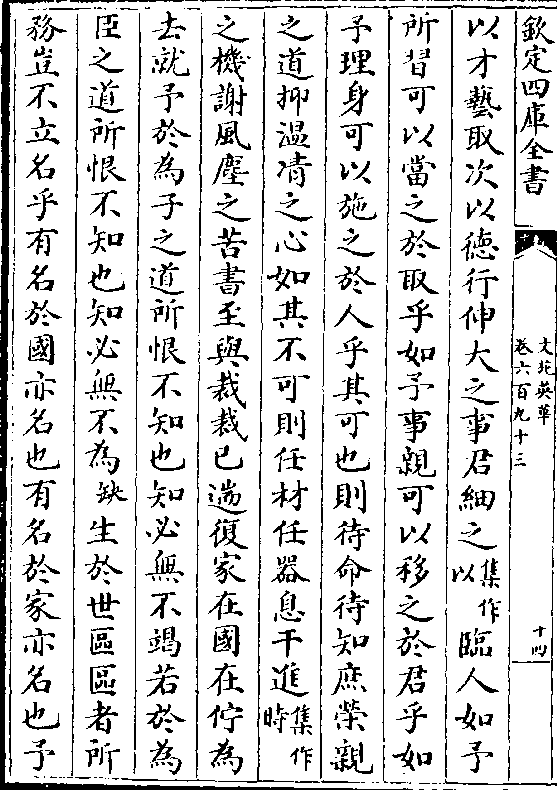 欽定四庫全書
文苑英華
卷六百九十三
十四
以才藝取次以德行伸大之事君細之集作以臨人如予
所習可以當之於取乎如予事親可以移之於君乎如
予理身可以施之於人乎其可也則待命待知庶榮親
之道抑溫凊之心如其不可則任材任器息干進集作時
之機謝風塵之苦書至與裁裁已遄復家在國在佇為
去就予於為子之道所恨不知也知必無不竭若於為
臣之道所恨不知也知必無不為缺生於世區區者所
務豈不立名乎有名於國亦名也有名於家亦名也予